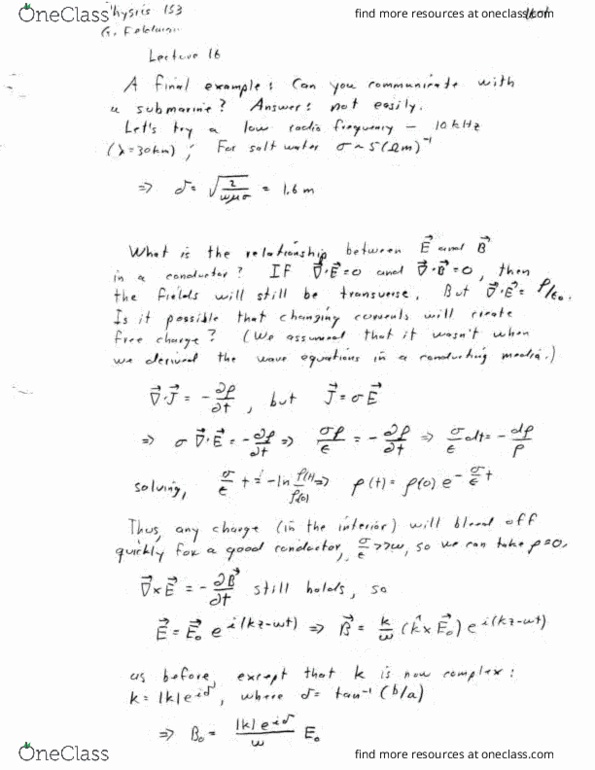 OneClass
find more resources at oneclass.com
Physics 153
G. Feldman
Lecture 16
A final example: Can you communicate with
a submarine? Answer: not easily.
Let's try a low radio frequency – 10 kHz
(λ=30km); For salt water σ ~ 5(Ωm)⁻¹
⇒ δ = √(2/ωμσ) = 1.6 m
What is the relationship between E⃗ and B⃗
in a conductor? IF ∇⃗·E⃗=0 and ∇⃗·B⃗=0, then
the fields will still be transverse. But ∇⃗·E⃗= ρ/ε₀.
Is it possible that changing currents will create
free charge? (We assumed that it wasn't when
we derived the wave equations in a conducting media.)
∇⃗·J⃗ = -∂ρ/∂t, but J⃗ = σE⃗
⇒ σ ∇⃗·E⃗ = -∂ρ/∂t ⇒ σρ/ε = -∂ρ/∂t ⇒ σ/ε dt = -dρ/ρ
solving, σ/ε t = -ln ρ(t)/ρ(0) ⇒ ρ(t) = ρ(0) e^(-σ/ε t)
Thus, any charge (in the interior) will bleed off
quickly for a good conductor, σ/ε >> ω, so we can take ρ=0.
∇⃗×E⃗ = -∂B⃗/∂t still holds, so
E⃗ = E⃗₀ e^(i(kz-ωt)) ⇒ B⃗ = k/ω (k̂×E⃗₀) e^(i(kz-ωt))
as before, except that k is now complex:
k = |k|e^(iδ), where δ = tan⁻¹ (b/a)
⇒ B₀ = |k|e^(iδ)/ω E₀
OneClass
find more resources at oneclass.com